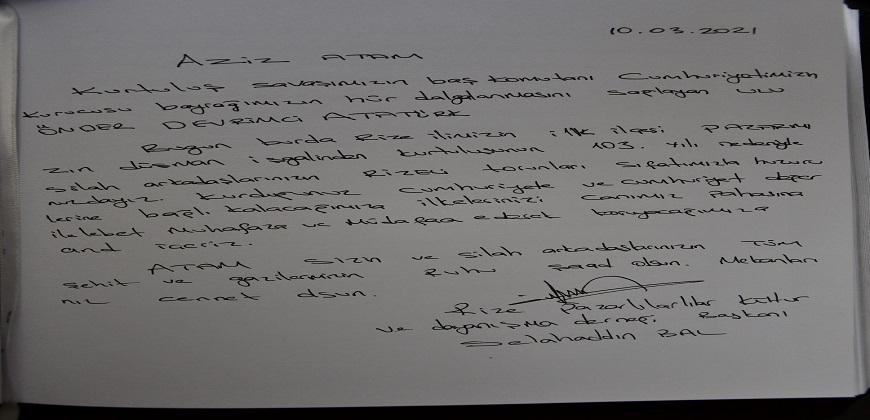 10.03.2021
AZİZ ATAM
Kurtuluş savaşımızın baş komutanı Cumhuriyetimizin
kurucusu bayrağımızın hür dalgalanmasını sağlayan ULU
ÖNDER DEVRİMCİ ATATÜRK
Bugün burda Rize ilimizin ilk ilçesi PAZARIMI
ZIN düşman işgalinden kurtuluşunun 103. yılı nedeniyle
silah arkadaşlarınızın RİZELİ torunları sıfatımızla huzuru
nuzdayız. Kurduğunuz cumhuriyete ve cumhuriyet değer
lerine bağlı kalacağımıza ilkelerinizi canımız pahasına
ilelebet muhafaza ve müdafaa ederek koruyacağımıza
and içeriz.
ATAM Sizin ve silah arkadaşlarınızın TÜM
şehit ve gazilerimizin Ruhu şaad olsun. Mekanları
nız cennet olsun.
Rize Pazarlılar kültür
ve dayanışma derneği Başkanı
Selahaddin BAL